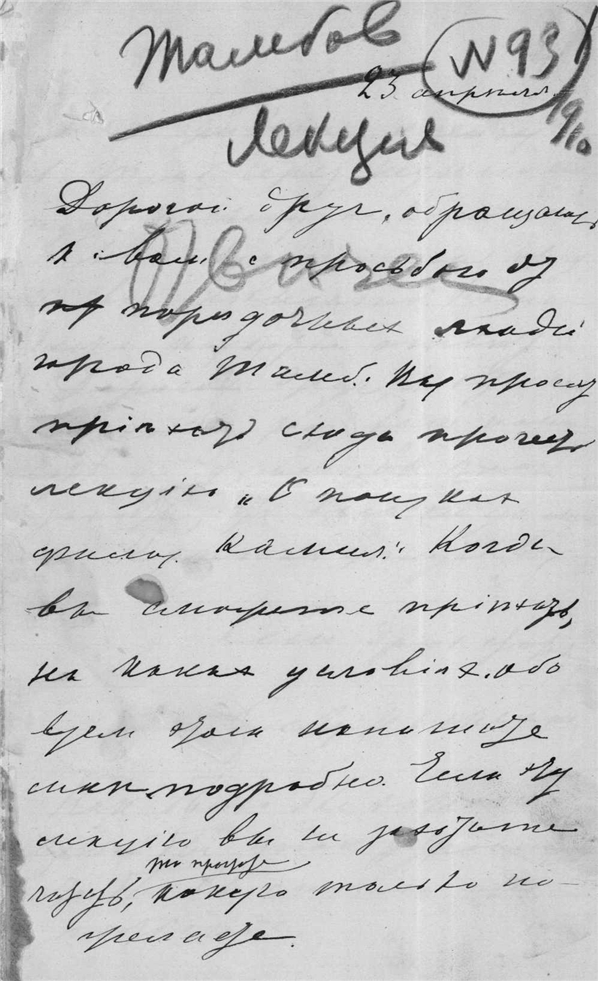 Тамбов
N 93
23 апреля
1910
Лекция
Дорогой друг, обращаюсь
к вам с просьбою от
порядочных людей
города Тамб. Вас просят
пріѣхать сюда прочесть
лекцію „О поисках
филос. камня". Когда
вы сможете пріѣхать,
на каких условіях, обо
всем этом напишите
мнѣ подробно. Если эту
лекцію вы не захотите
читать, то прочтите какую только по-
желаете.